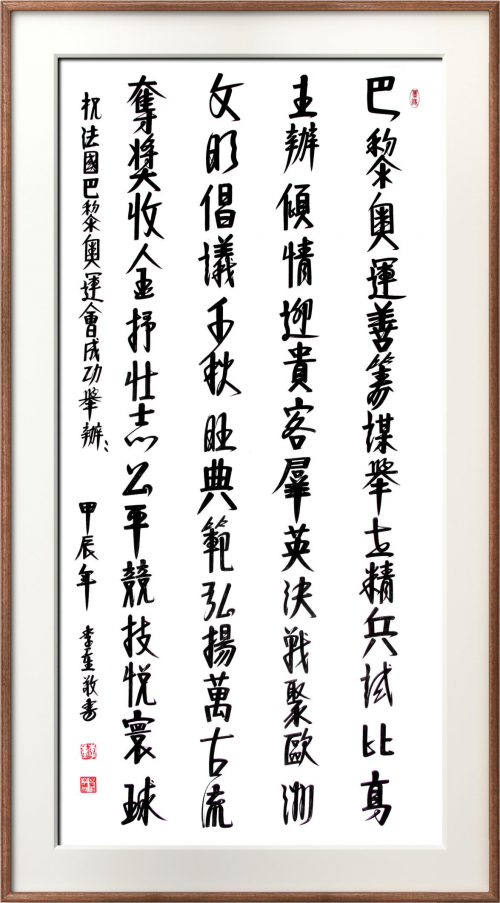 巴黎奧運善籌謀舉世精兵試比高
主辦傾情迎貴客羣英決戰聚歐洲
文明倡議千秋旺典範弘揚萬古流
奪獎收金抒壯志公平競技悅寰球
祝法國巴黎奧運會成功舉辦 甲辰年 李敬書